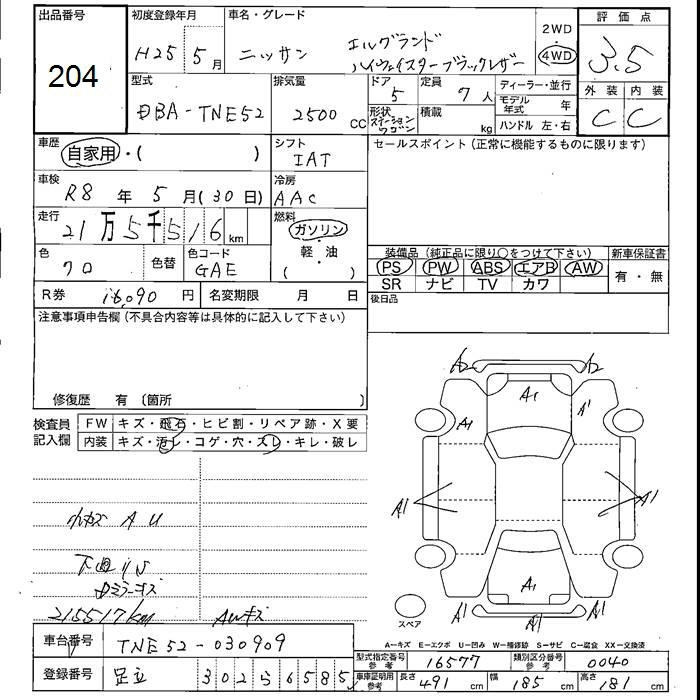 出品番号 初度登録年月 車名・グレード 2WD 評価点
204 H25年 5月 ニッサン エルグランド 4WD 3.5
ハイウェイスターブラックレザー
外装 内装
C C
型式 排気量 ドア 定員 ディーラー・並行
DBA-TNE52 2500cc 5 7人 モデル年式 年
形状 ステーションワゴン 積載 kg ハンドル 左・右
車歴 自家用・( ) シフト IAT セールスポイント(正常に機能するものに限ります)
車検 R8年 5月(30日) 冷房 AAC
走行 21万5千516km 燃料 ガソリン・軽・油 ( )
装備品(純正品に限り○をつけて下さい) 新車保証書
色 クロ 色替 色コード GAE
PS PW ABS エアB AW 有・無
SR ナビ TV カワ
R券 16,090円 名変期限 月 日 後日品
注意事項申告欄(不具合内容等は具体的に記入して下さい)
修復歴 有〔箇所 〕
検査員記入欄 FW キズ・飛石・ヒビ割・リペア跡・X要
内装 キズ・汚レ・コゲ・穴・スレ・キレ・破レ
小キズ A U
下廻りS
ミラーキズ
215517km AWキズ
A2 A2
A1
A1 A1
A1 A1
A1
A1 A1 A1
スペア
A-キズ E-エクボ U-凹み W-補修跡 S-サビ C-腐食 XX-交換済
車台番号 TNE52-030909
型式指定番号 参考 16577 類別区分番号 参考 0040
登録番号 足立 302 ら 6585
車庫証明用 参考 長さ 491cm 幅 185cm 高さ 181cm